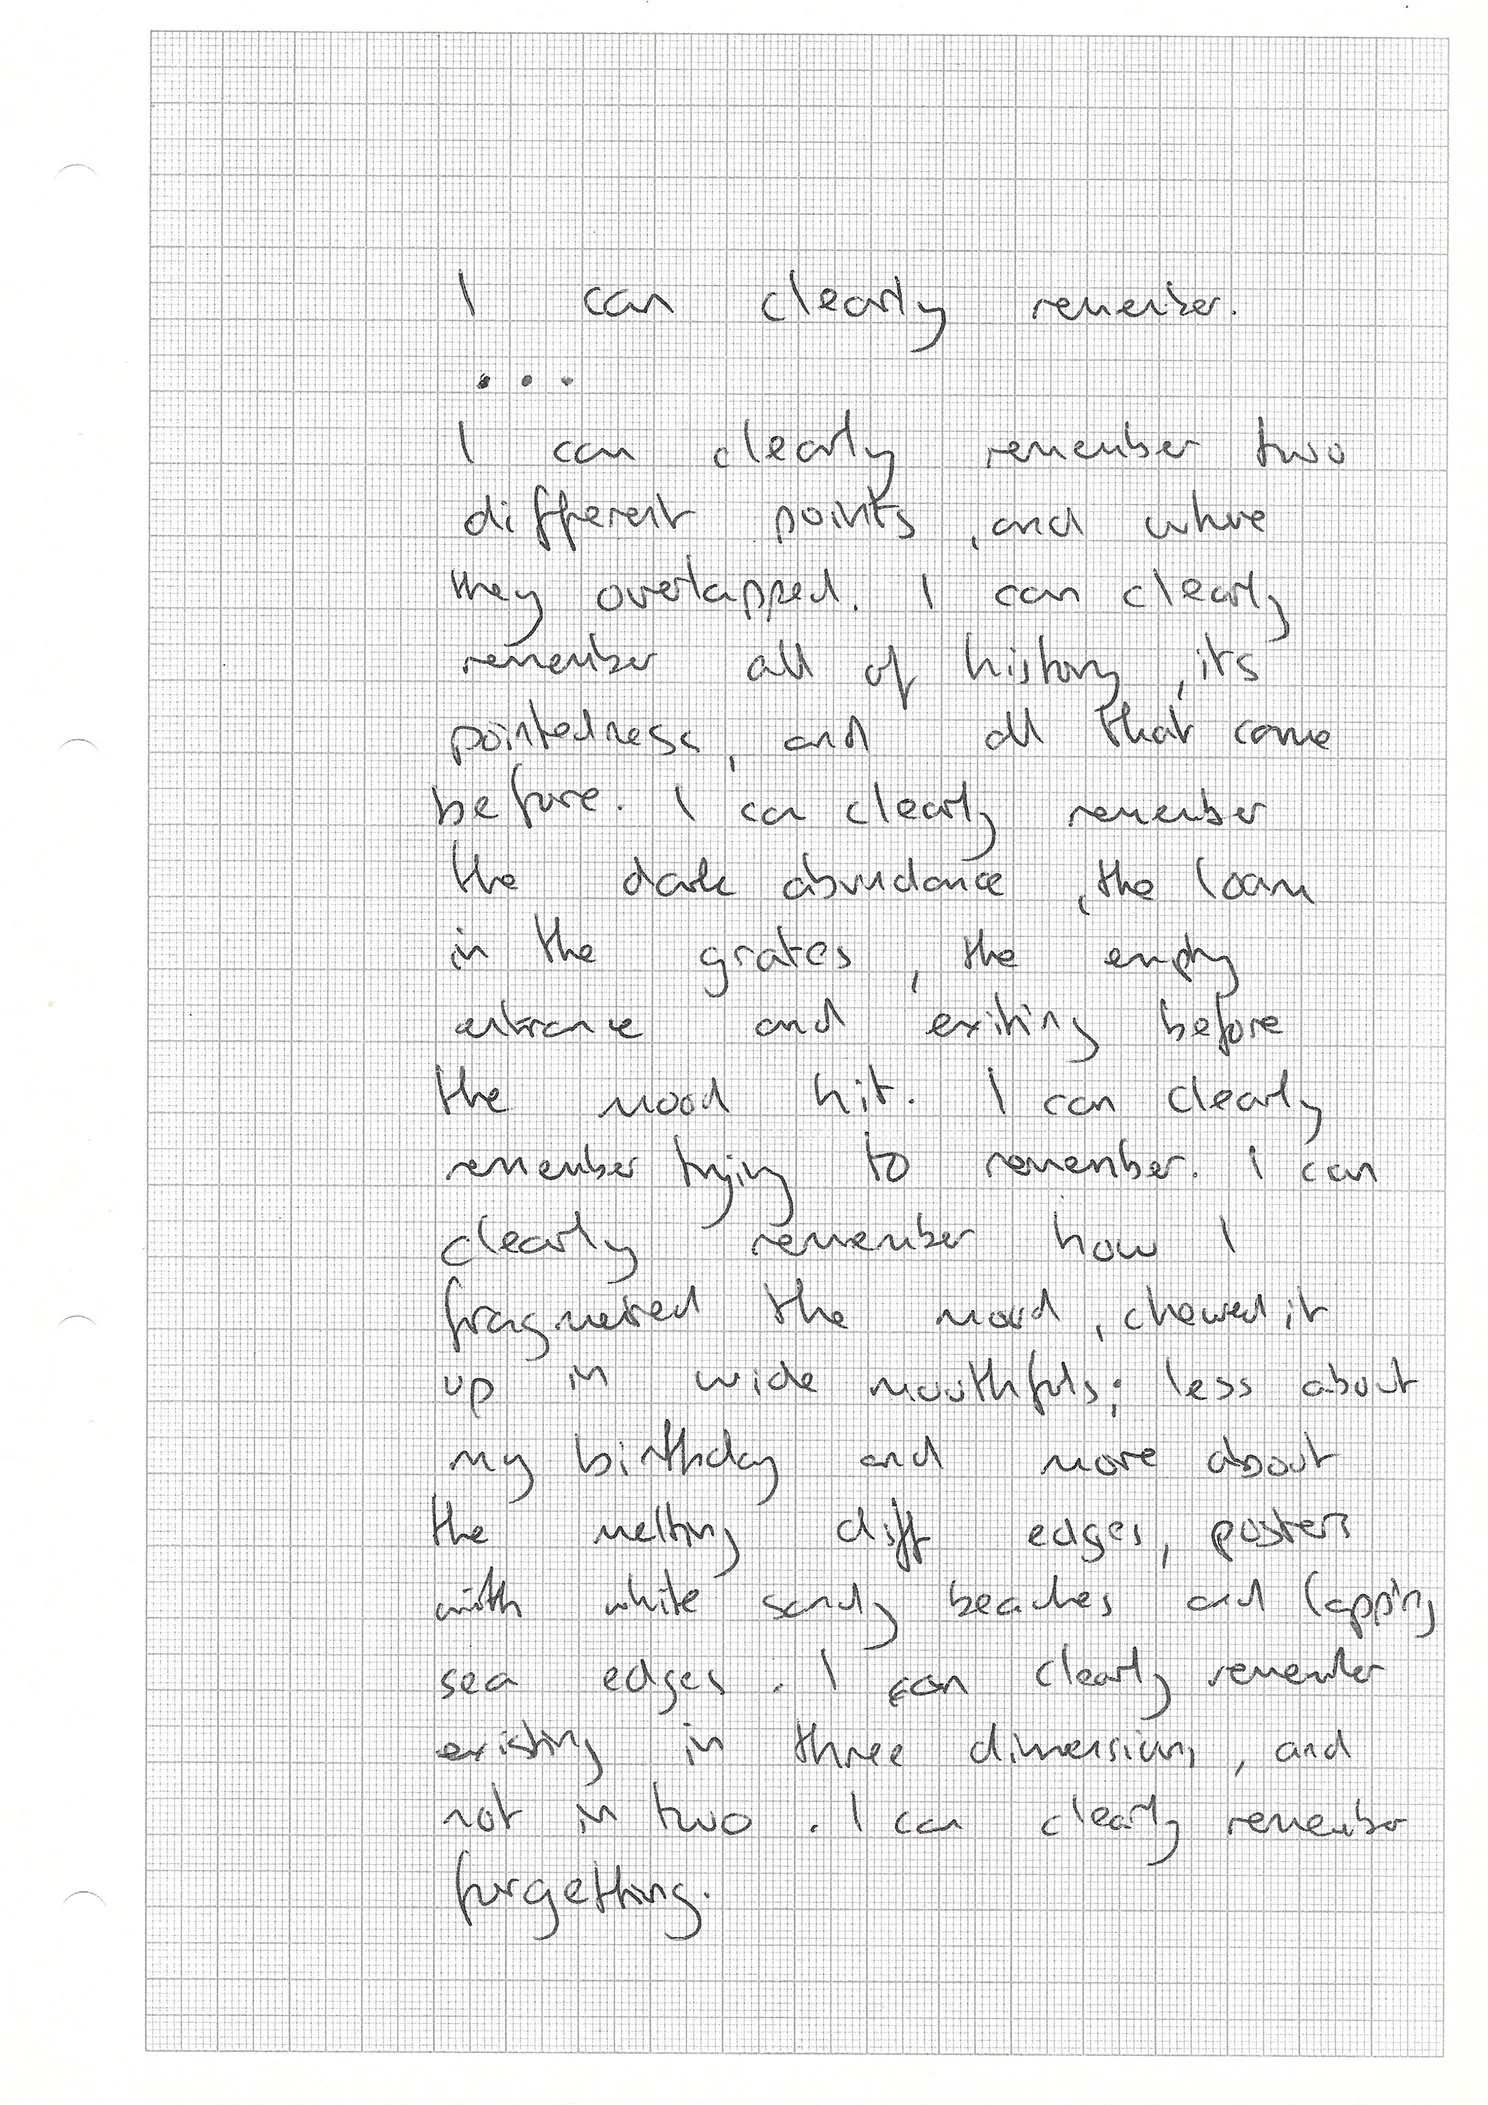 I can clearly remember.
...
I can clearly remember two
different points, and where
they overlapped. I can clearly
remember all of history, its
pointedness, and all that came
before. I can clearly remember
the dark abundance, the loam
in the grates, the empty
entrance and exiting before
the mood hit. I can clearly
remember trying to remember. I can
clearly remember how I
fragmented the mood, chewed it
up in wide mouthfuls; less about
my birthday and more about
the melting cliff edges, posters
with white sandy beaches and lapping
sea edges. I can clearly remember
existing in three dimensions, and
not in two. I can clearly remember
forgetting.